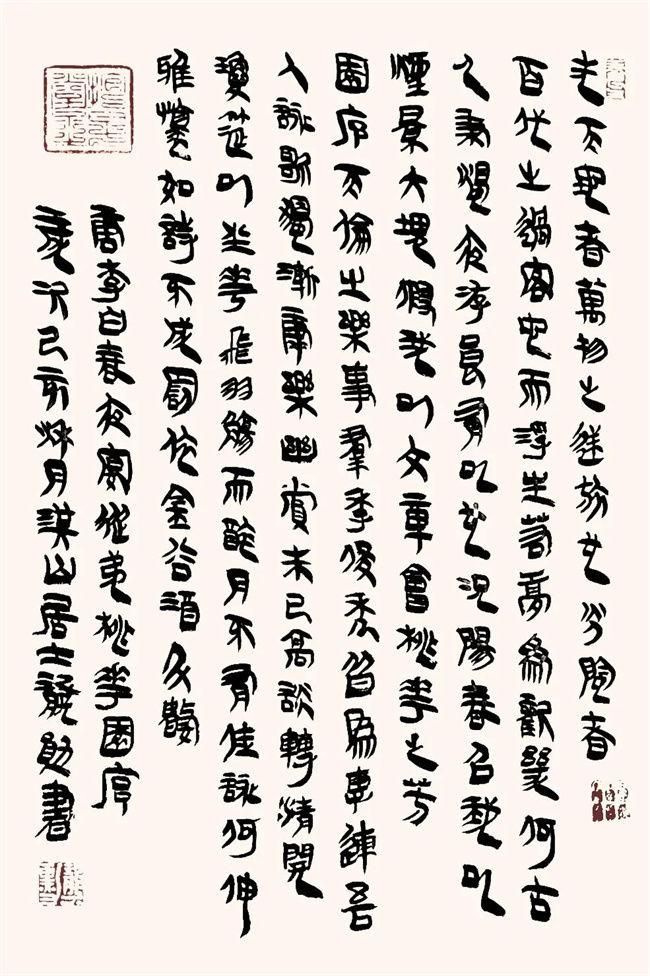 夫天地者萬物之逆旅也光陰者
百代之過客也而浮生若夢為歡幾何古
人秉燭夜游良有以也況陽春召我以
煙景大塊假我以文章會桃李之芳
園序天倫之樂事羣季俊秀皆為惠連吾
人詠歌獨慚康樂幽賞未已高談轉清開
瓊筵以坐花飛羽觴而醉月不有佳詠何伸
雅懷如詩不成罰依金谷酒斗數
唐李白春夜宴從弟桃李園序
歲次己亥秋月淇山居士勛書